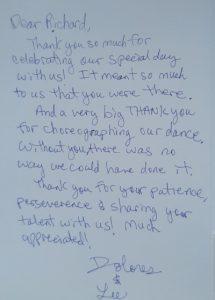 Dear Richard,
Thank you so much for
celebrating our special day
with us! It meant so much
to us that you were there.
And a very big THANK you
for choreographing our dance.
Without you, there was no
way we could have done it.
Thank you for your patience,
perseverence & sharing your
talent with us! Much
appreciated!
Dolores
&
Lee